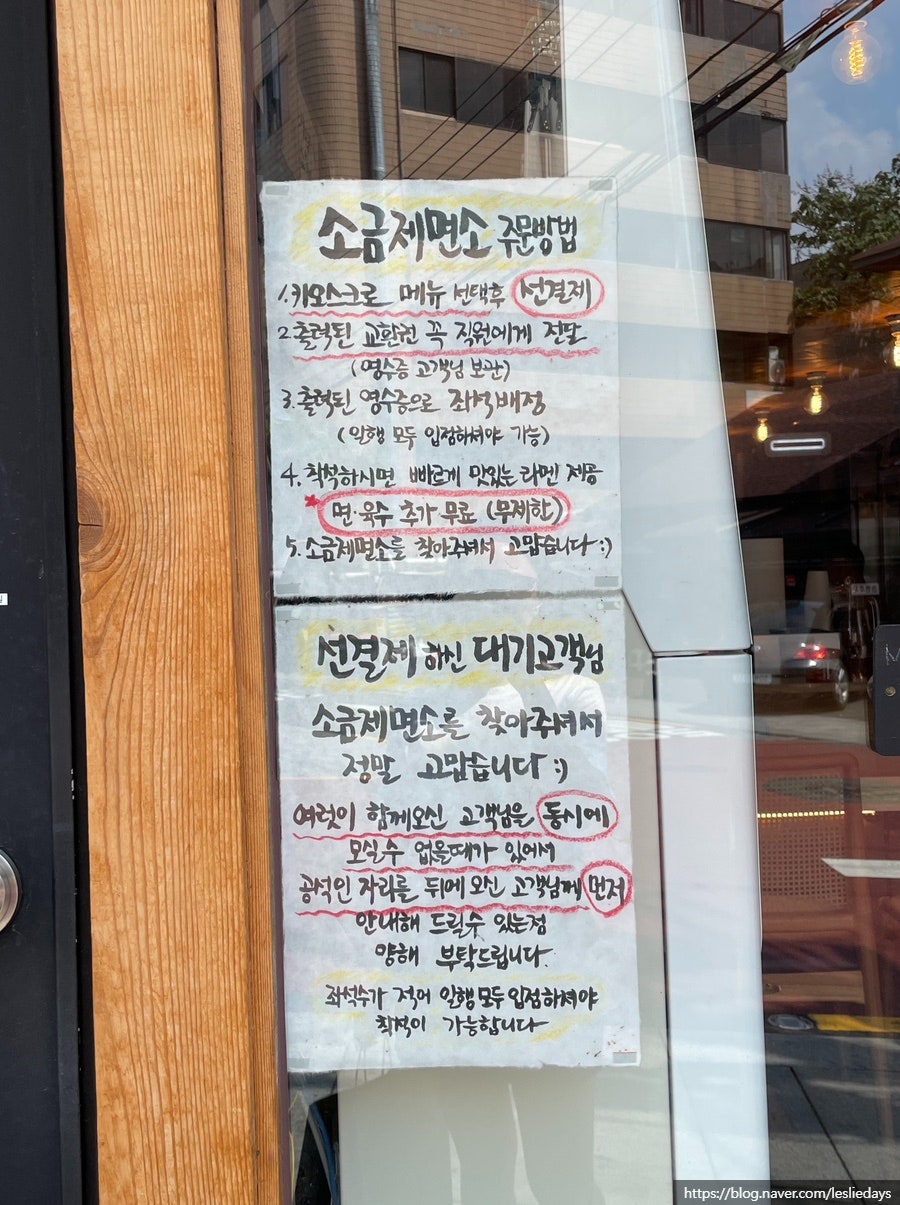 소금제면소 주문방법
1. 키오스크로 메뉴 선택후 선결제
2. 출력된 교환권 꼭 직원에게 전달
(영수증 고객님 보관)
3. 출력된 영수증으로 좌석배정
(일행 모두 입점하셔야 가능)
4. 착석하시면 빠르게 맛있는 라멘 제공
면·육수 추가 무료 (무제한)
5. 소금제면소를 찾아주셔서 고맙습니다 :)
선결제 하신 대기고객님
소금제면소를 찾아주셔서
정말 고맙습니다 :)
여럿이 함께오신 고객님을 동시에
모실수 없을때가 있어서
공석인 자리를 뒤에 오신 고객님께 먼저
안내해 드릴수 있는점
양해 부탁드립니다.
좌석수가 적어 일행 모두 입점하셔야
착석이 가능합니다
https://blog.naver.com/lesliedays